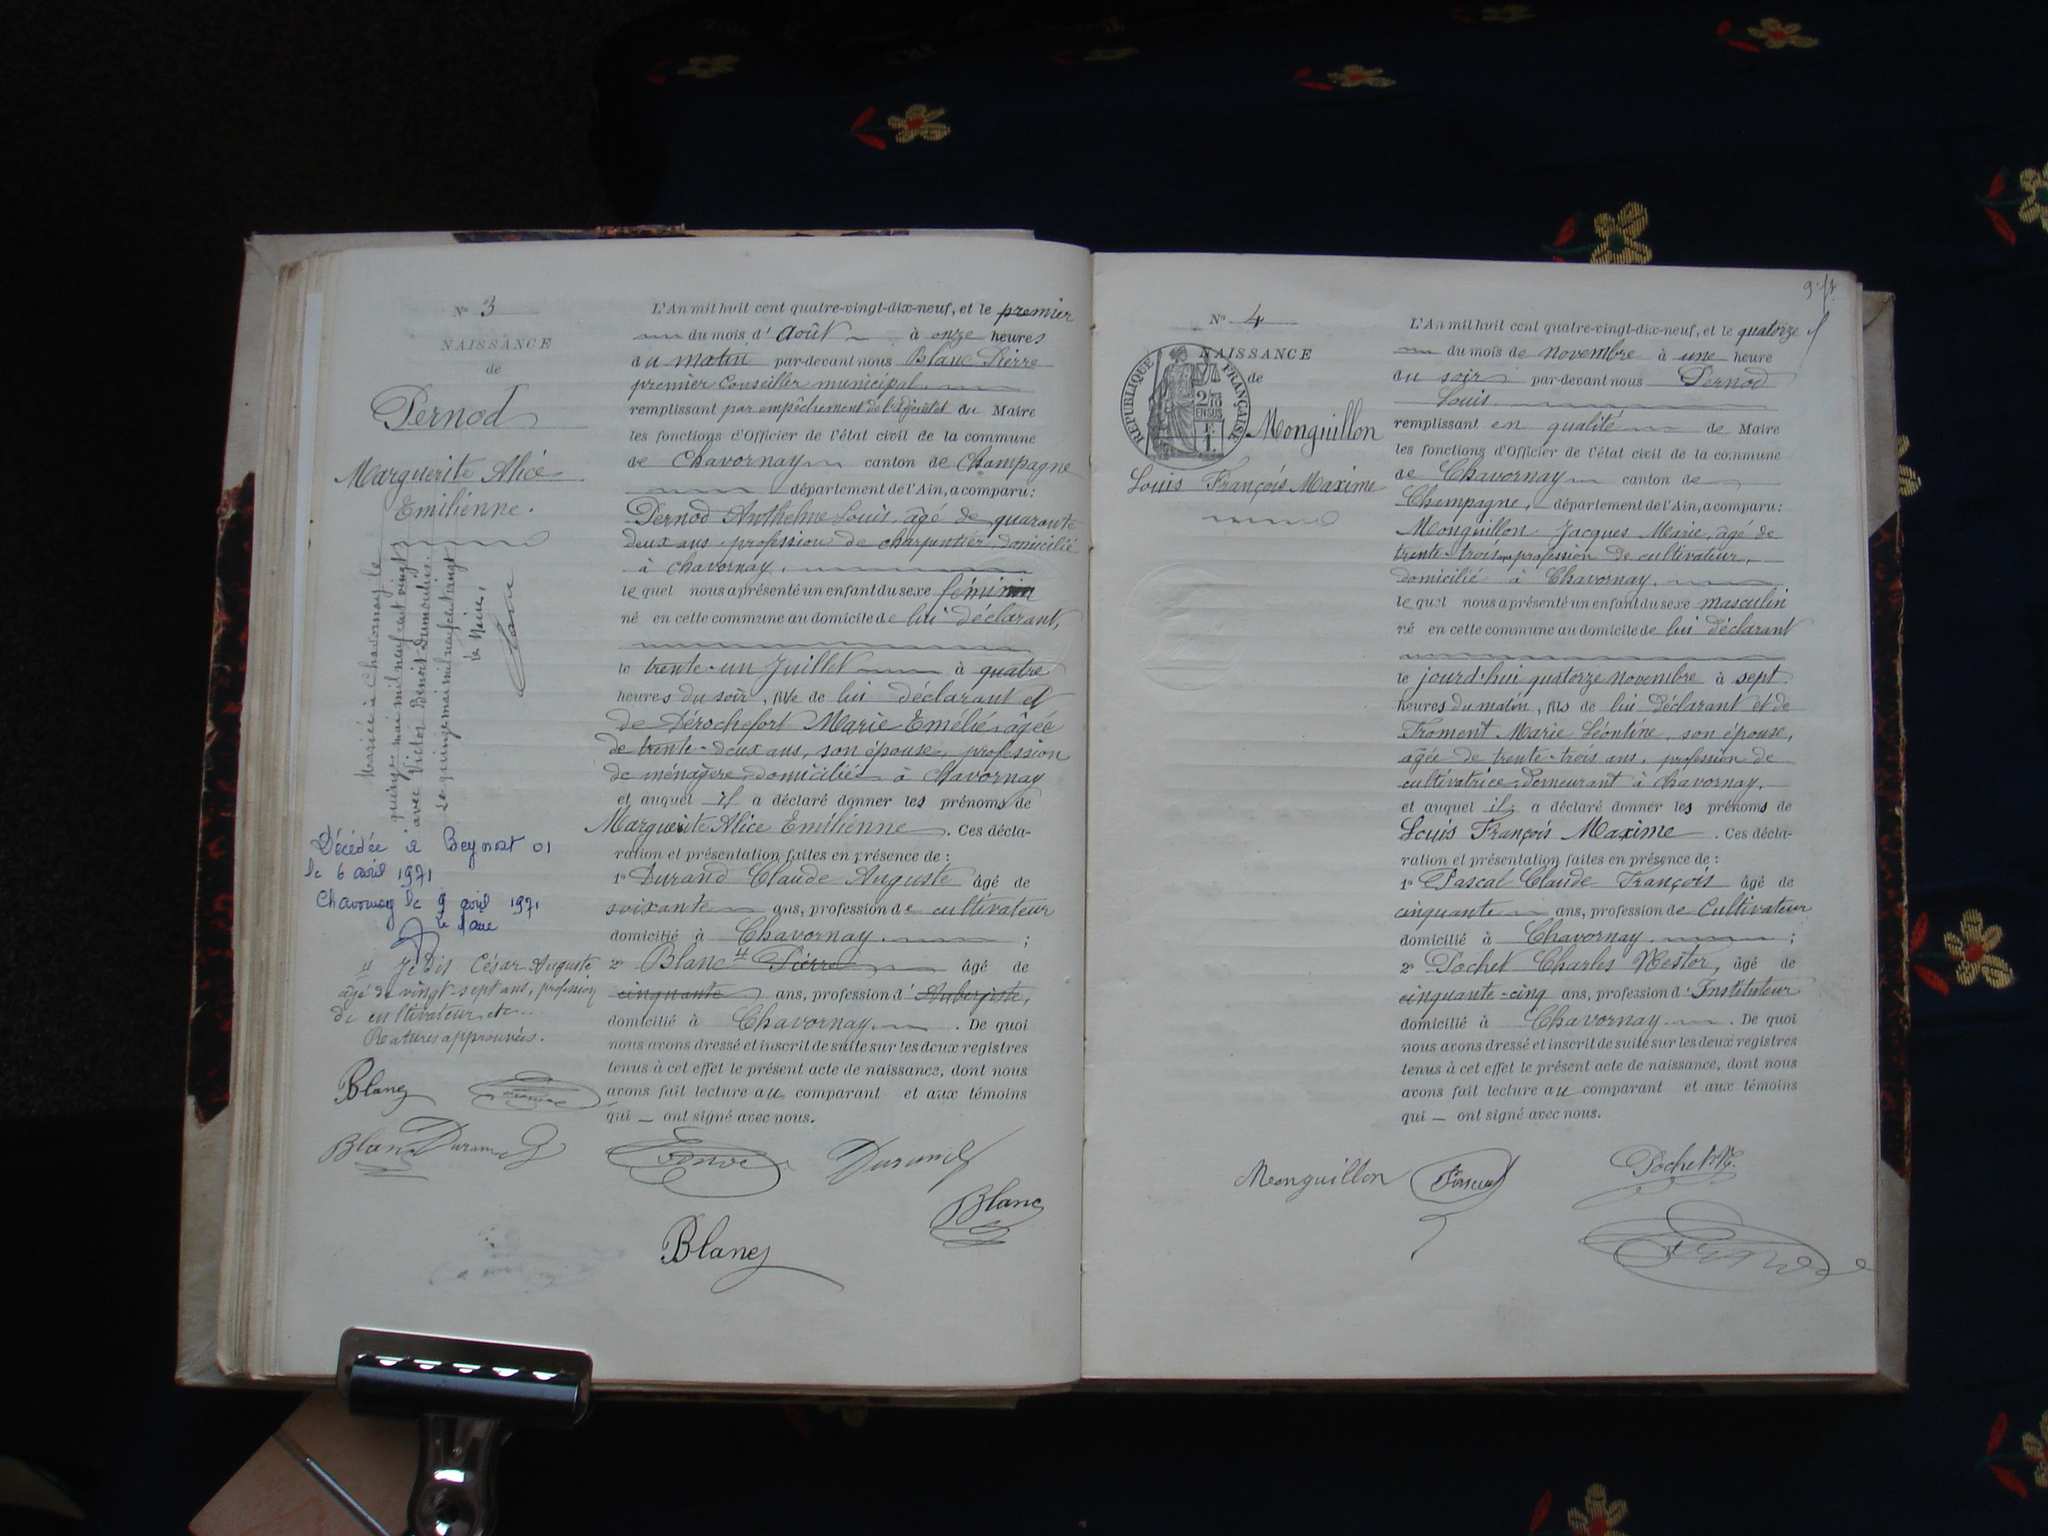 N° 3
NAISSANCE
de
Pernod
Marguerite Alice
Emilienne.
Mariée à Chavornay le
quinze mai mil neuf cent vingt
avec Victor Benoit Dumoulin.
Le quinze mai mil neuf cent vingt
Le Maire,
Décédée à Beynost 01
le 6 avril 1971
Chavornay le 9 avril 1971
Le Maire
Jedis César Auguste
âgé de vingt-sept ans, profession
de cultivateur, etc..
Ratures approuvées.
Blanc
Blanc Durand
L'An mil huit cent quatre-vingt-dix-neuf, et le premier
du mois d' Août à onze heures
du matin par-devant nous Blanc Pierre
premier Conseiller municipal
remplissant par empêchement de l'adjoint et du Maire
les fonctions d'Officier de l'état civil de la commune
de Chavornay canton de Champagne
département de l'Ain, a comparu:
Pernod Anthelme Louis, âgé de quarante
deux ans, profession de charpentier, domicilié
à Chavornay.
le quel nous a présenté un enfant du sexe féminin
né en cette commune au domicile de lui déclarant,
le trente-un Juillet à quatre
heures du soir, fille de lui déclarant et
de Dérochefort Marie Emélie, âgée
de trente-deux ans, son épouse, profession
de ménagère, domiciliée à Chavornay
et auquel il a déclaré donner les prénoms de
Marguerite Alice Emilienne. Ces décla-
ration et présentation faites en présence de:
1° Durand Claude Auguste âgé de
soixante ans, profession de cultivateur
domicilié à Chavornay. ;
2° Blanc Pierre âgé de
cinquante ans, profession d'Aubergiste,
domicilié à Chavornay. De quoi
nous avons dressé et inscrit de suite sur les deux registres
tenus à cet effet le présent acte de naissance, dont nous
avons fait lecture au comparant et aux témoins
qui — ont signé avec nous.
Durand
Blanc
Blanc
N° 4
NAISSANCE
de
RÉPUBLIQUE FRANÇAISE
Monguillon
Louis François Maxime
L'An mil huit cent quatre-vingt-dix-neuf, et le quatorze
du mois de novembre à une heure
du soir par-devant nous Pernod
Louis
remplissant en qualité de Maire
les fonctions d'Officier de l'état civil de la commune
de Chavornay canton de
Champagne, département de l'Ain, a comparu:
Monguillon Jacques Marie, âgé de
trente-trois ans, profession de cultivateur,
domicilié à Chavornay.
le quel nous a présenté un enfant du sexe masculin
né en cette commune au domicile de lui déclarant
le jourd'hui quatorze novembre à sept
heures du matin, fils de lui déclarant et de
Froment Marie Léontine, son épouse,
âgée de trente-trois ans, profession de
cultivatrice, demeurant à Chavornay.
et auquel il a déclaré donner les prénoms de
Louis François Maxime. Ces décla-
ration et présentation faites en présence de:
1° Pascal Claude François âgé de
cinquante ans, profession de Cultivateur
domicilié à Chavornay. ;
2° Pochet Charles Nestor, âgé de
cinquante-cinq ans, profession d'Instituteur
domicilié à Chavornay. De quoi
nous avons dressé et inscrit de suite sur les deux registres
tenus à cet effet le présent acte de naissance, dont nous
avons fait lecture au comparant et aux témoins
qui — ont signé avec nous.
Monguillon
Pochet